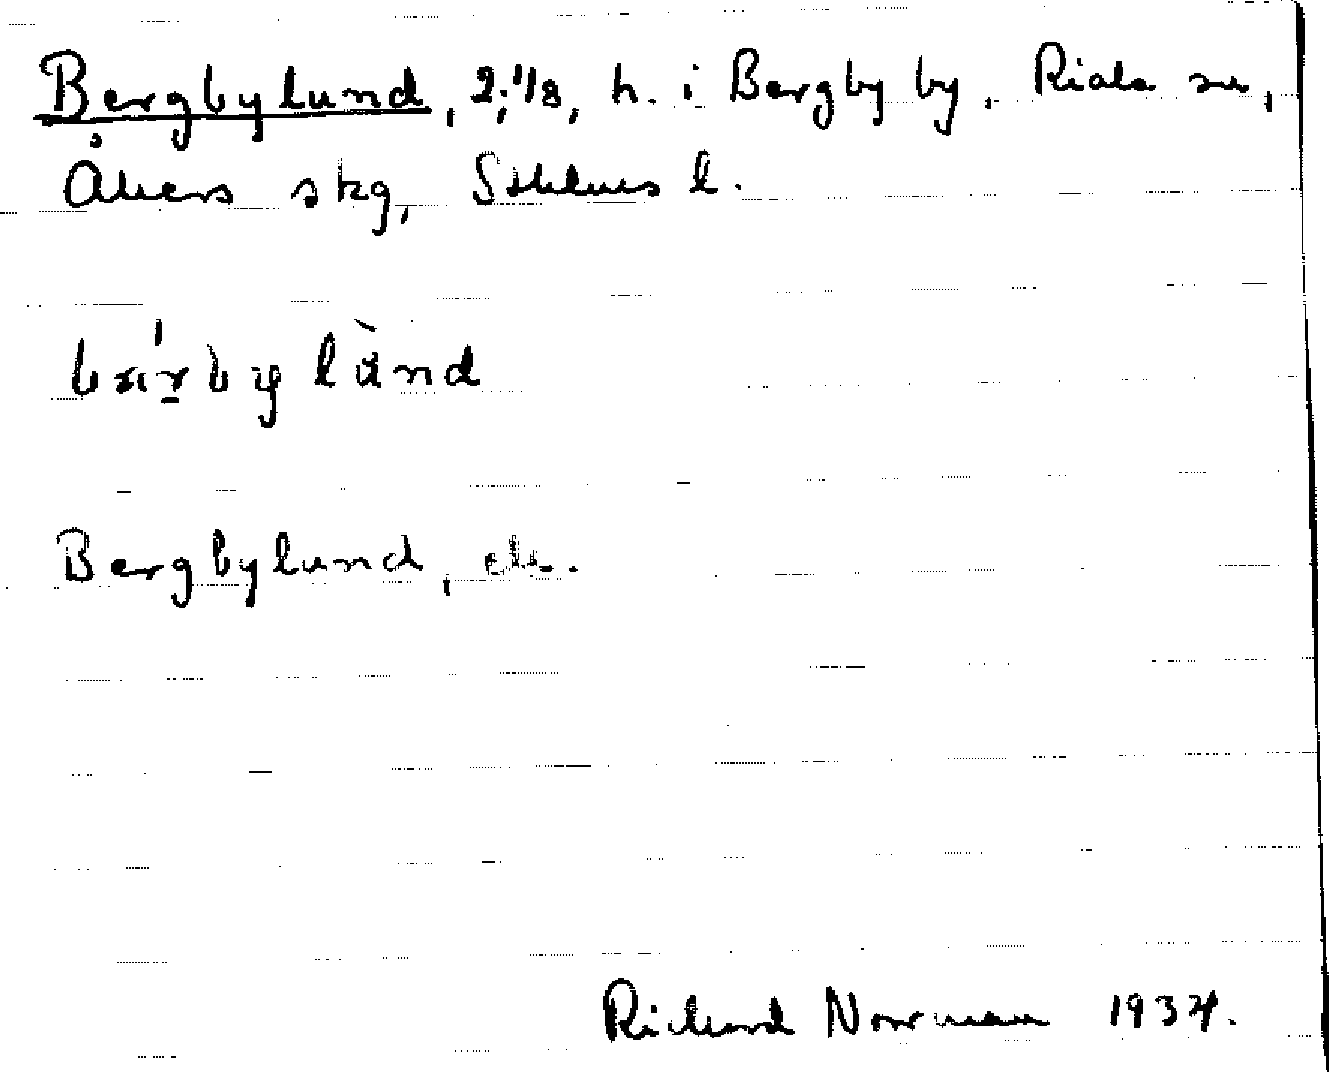 Bergbylund, 2;1/8, h. i Bergby by, Riala sn,
Åkers skg, Sthlms l.
Bergbylund, ek.
Richard Norrman 1934.